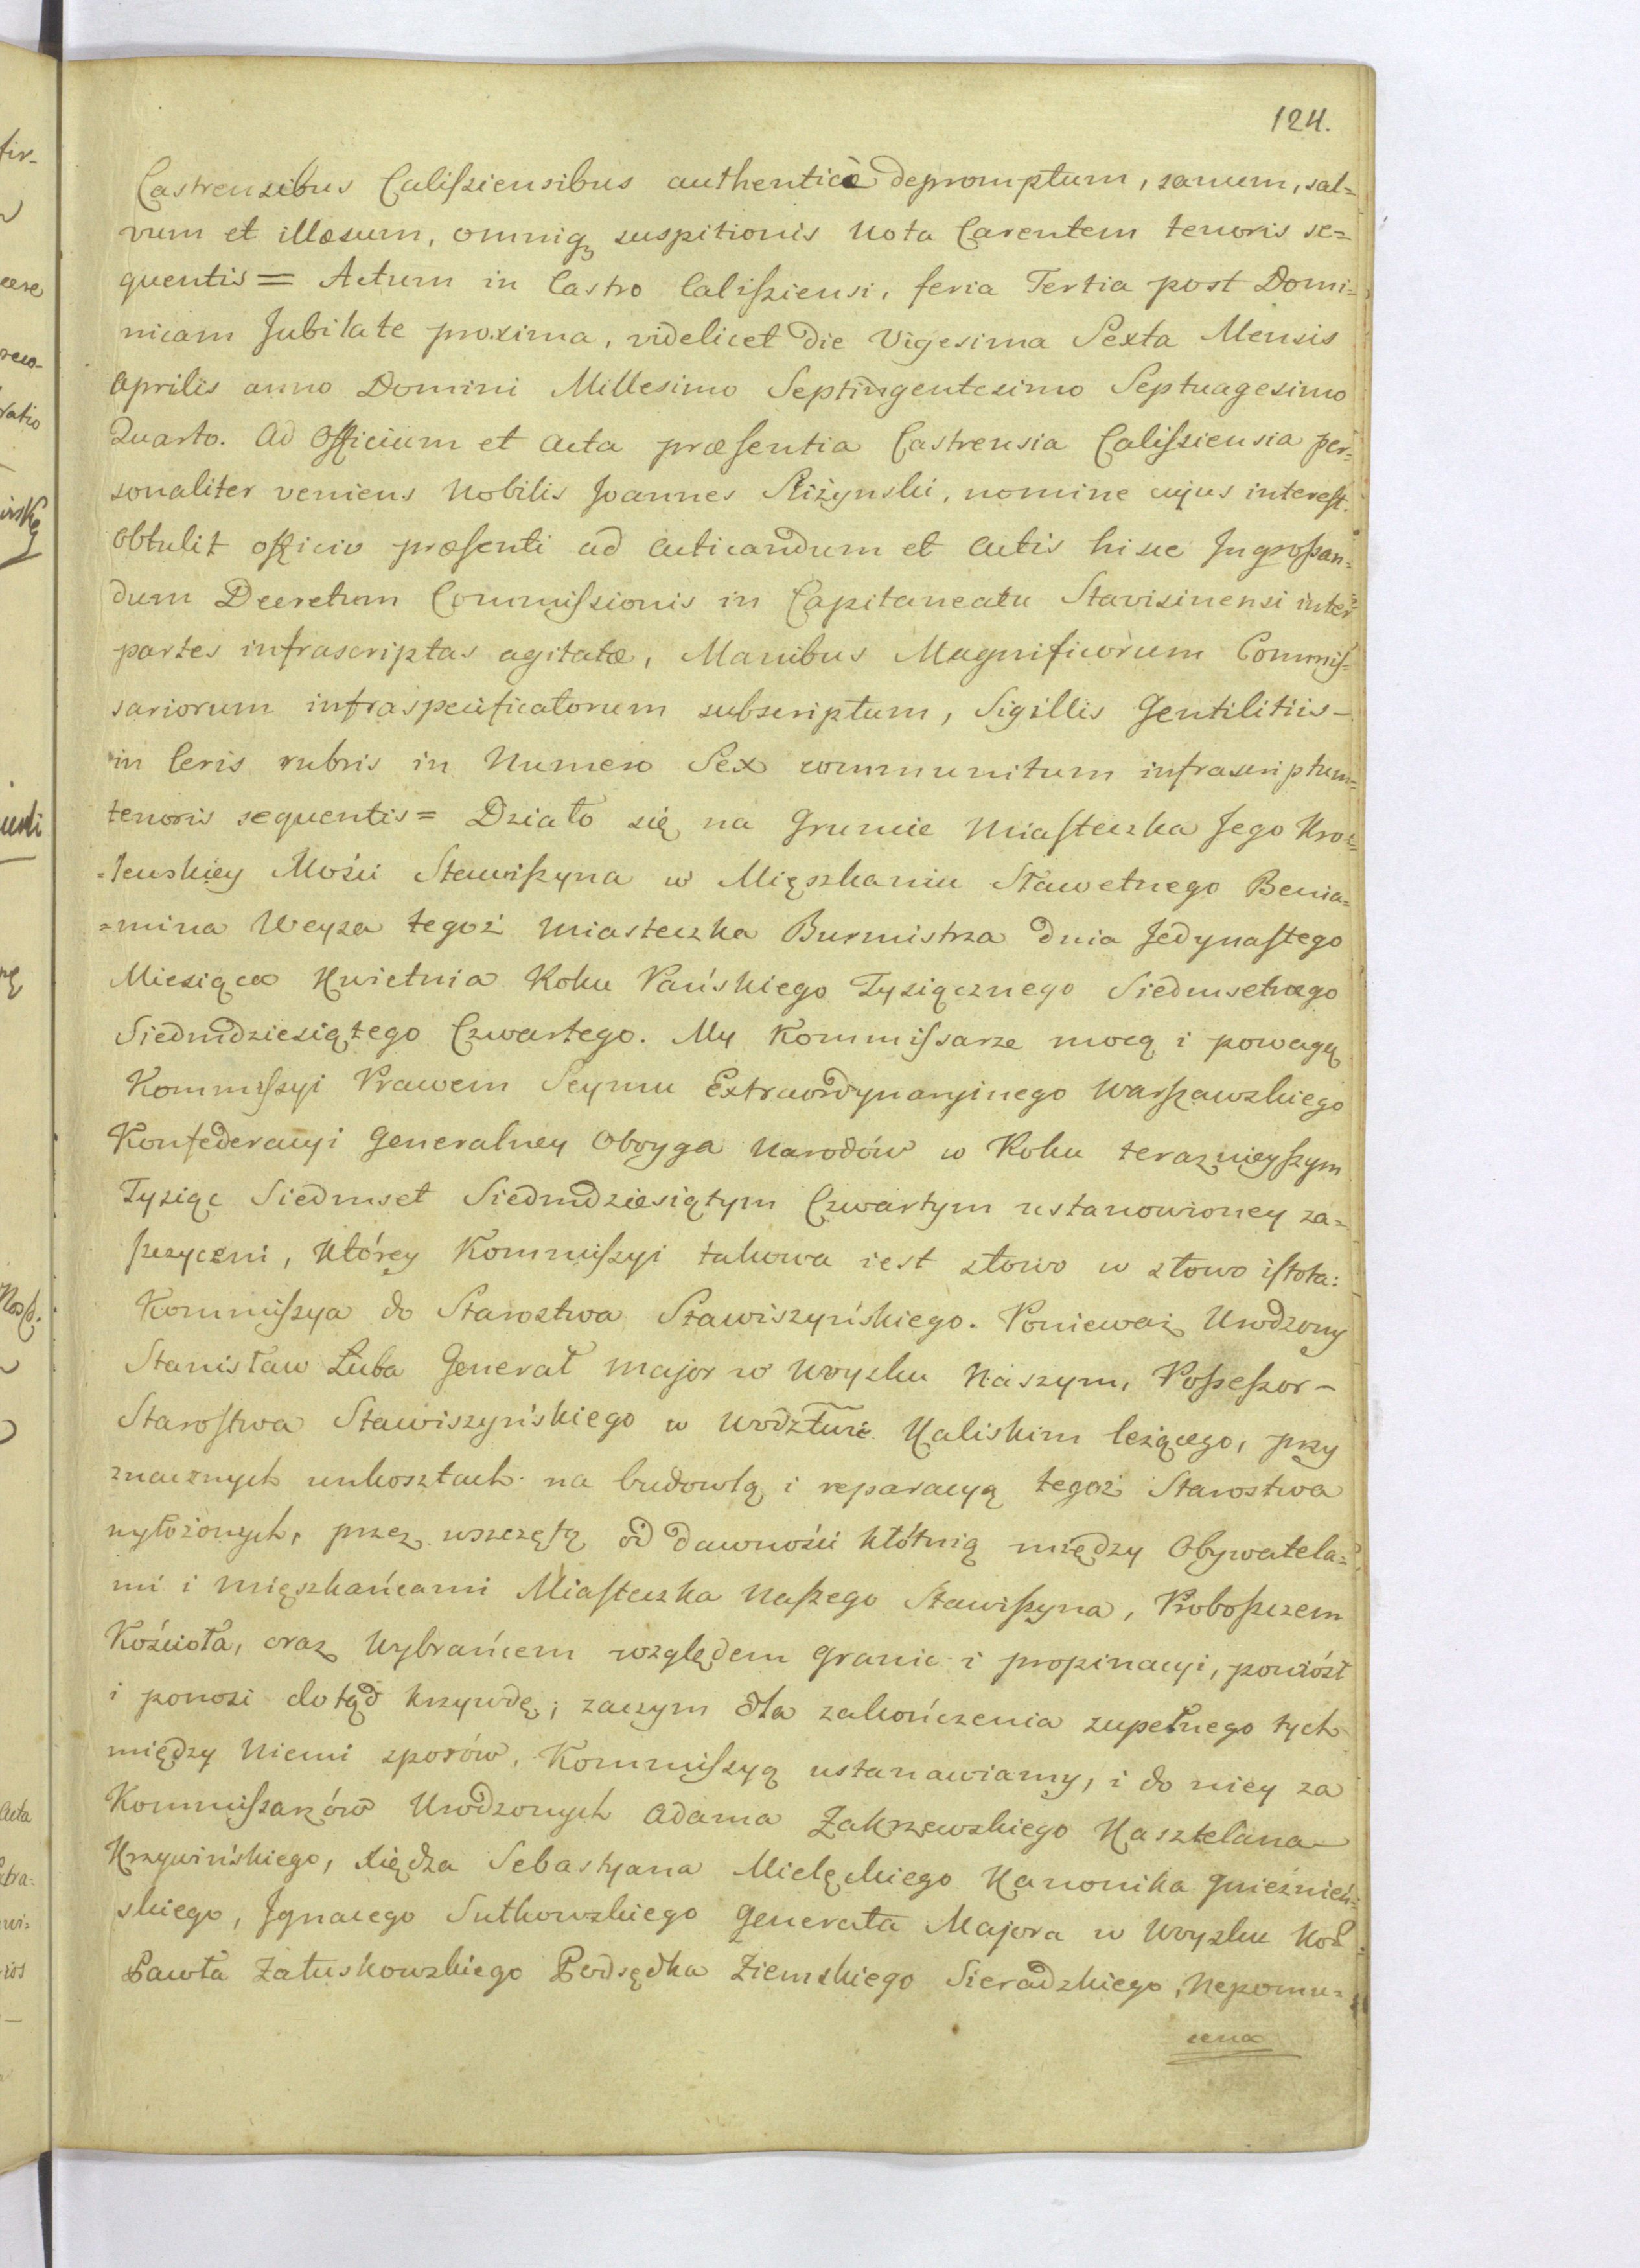 124.
Castrensibus Calissiensibus authenticè depromptum, sanum, sal=
vum et illæsum, omniq₃ suspitionis Nota Carentem tenoris se=
quentis = Actum in Castro Calissiensi, feria Tertia post Domi=
nicam Jubilate proxima, videlicet Die Vigesima Sexta Mensis
Aprilis anno Domini Millesimo Septingentesimo Septuagesimo
Quarto. Ad Officium et Acta præsentia Castrensia Calissiensia per=
sonaliter veniens Nobilis Joannes Riżynski, nomine cujus interest.
obtulit officio præsenti ad acticandum et Actis hisce Ingrossan=
dum Decretum Commissionis in Capitaneatu Stavisinensi inter
partes infrascriptas agitatæ, Manibus Magnificorum Commis=
sariorum infraspecificatorum subscriptum, Sigillis Gentilitiis –
in Ceris rubris in Numero Sex communitum infrascriptum=
tenoris sequentis = Działo się na Gruncie Miasteczka Jego Kro=
=lewskiey Mości Stawiszyna w Mięszkaniu Sławetnego Benia=
=mina Weysa tegoż Miasteczka Burmistrza dnia Jedynastego
Miesiąca Kwietnia Roku Pańskiego Tysiącznego Siedmsetnego
Siedmdziesiątego Czwartego. My Kommissarze mocą i powagą
Kommissyi Prawem Seymu Extraordynaryinego Warszawskiego
Konfederacyi Generalney Oboyga Narodów w Roku teraznieyszym
Tysiąc Siedmset Siedmdziesiątym Czwartym ustanowioney za=
szczyceni, Którey Kommissyi takowa iest słowo w słowo istota:
Kommissya do Starostwa Stawiszyńskiego. Ponieważ Urodzony
Stanisław Łuba Generał Major w Woysku Naszym, Possessor –
Starostwa Stawiszyńskiego w Wodztwie Kaliskim leżącego, przy
znacznych unkosztach na budowlą i reparacyą tegoż Starostwa
wyłożonych, przez wszczętą od dawności kłótnią między Obywatela=
mi i mięszkańcami Miasteczka Naszego Stawiszyna, Proboszczem
Kościoła, oraz Wybrańcem względem granic i propinacyi, poniósł
i ponosi dotąd krzywdę; zaczym dla zakończenia zupełnego tych
między Niemi sporów, Kommissyą ustanawiamy, i do niey za
Kommissarzów Urodzonych Adama Zakrzewskiego Kasztelana
Krzywińskiego, Xiędza Sebastyana Mielęckiego Kanonika Gnieźnień=
skiego, Jgnacego Sutkowskiego Generała Majora w Woysku Kor
Pawła Załuskowskiego Podsędka Ziemskiego Sieradzkiego, Nepomu=
cena